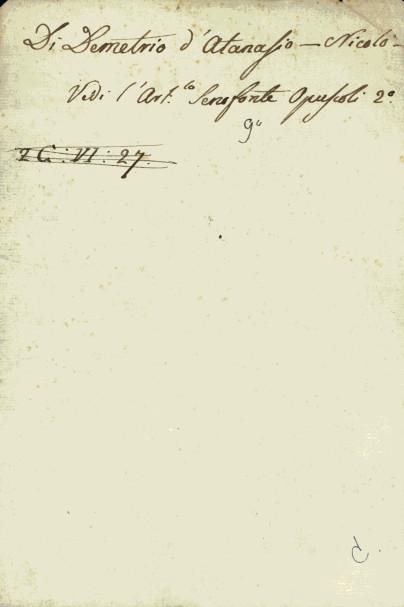 Di Demetrio d'Atanasio — Nicolò —
Vedi l'Art.lo Senofonte Opuscoli 2º
9º
2 C: VI: 27.
C.